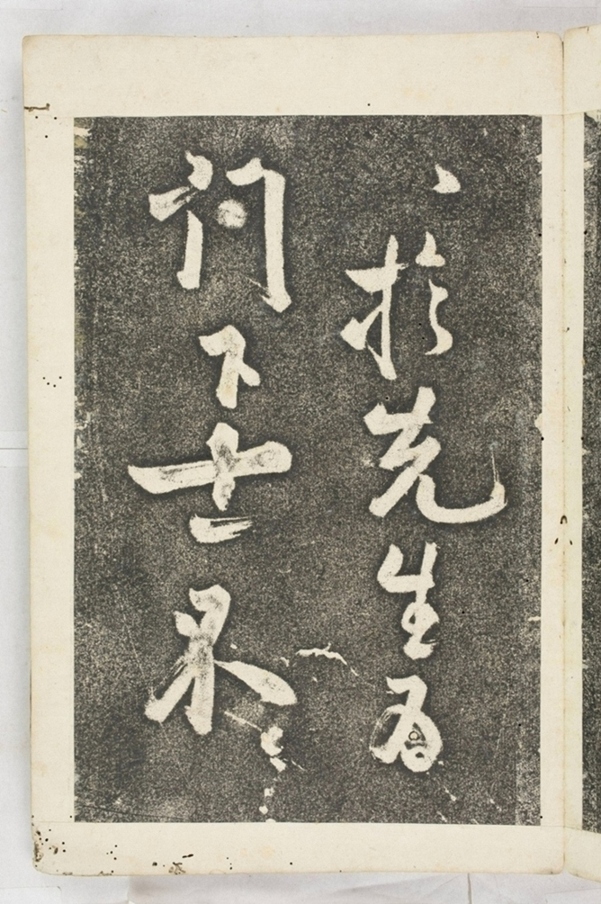 於先生為
門下士眾